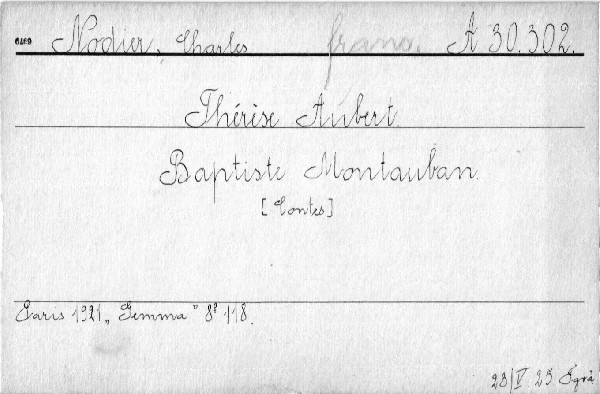 6479 Nodier, Charles franc. A 30.302.
Thérèse Aubert.
Baptiste Montauban.
[Contes]
Paris 1921 „Gemma" 8° 118.
23/V 25